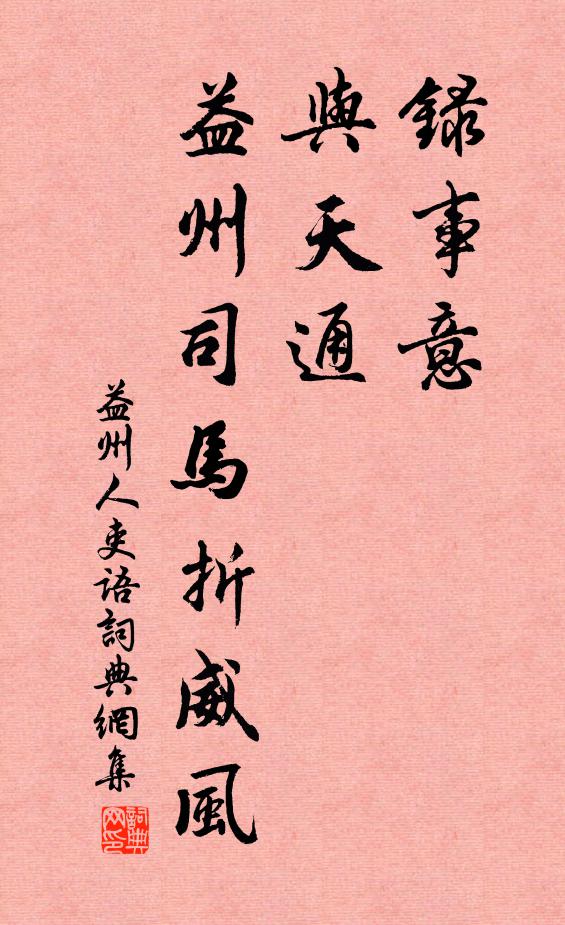 錄事意
與天通
益州司馬折威風
益州人吏語詞典網集
詞典网印